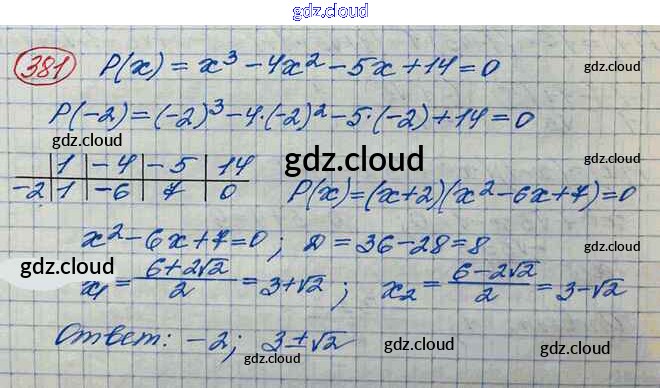 gdz.cloud
381 P(x) = x³ - 4x² - 5x + 14 = 0
gdz.cloud
P(-2) = (-2)³ - 4·(-2)² - 5·(-2) + 14 = 0
gdz.cloud gdz.cloud
1 | -4 | -5 | 14
gdz.cloud
-2 | 1 | -6 | 7 | 0 P(x) = (x+2)(x² - 6x + 7) = 0
gdz.cloud
x² - 6x + 7 = 0; D = 36 - 28 = 8
gdz.cloud gdz.cloud
x₁ = (6+2√2)/2 = 3+√2; x₂ = (6-2√2)/2 = 3-√2
gdz.cloud
Ответ: -2; 3±√2
gdz.cloud gdz.cloud
gdz.cloud